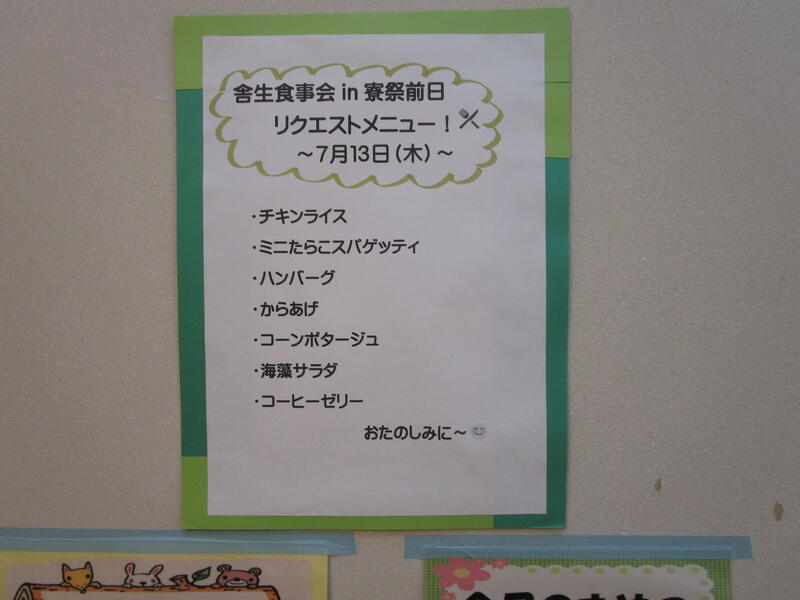 舎生食事会 in 寮祭前日
リクエストメニュー！
～7月13日（木）～
・チキンライス
・ミニたらこスパゲッティ
・ハンバーグ
・からあげ
・コーンポタージュ
・海藻サラダ
・コーヒーゼリー
おたのしみに～